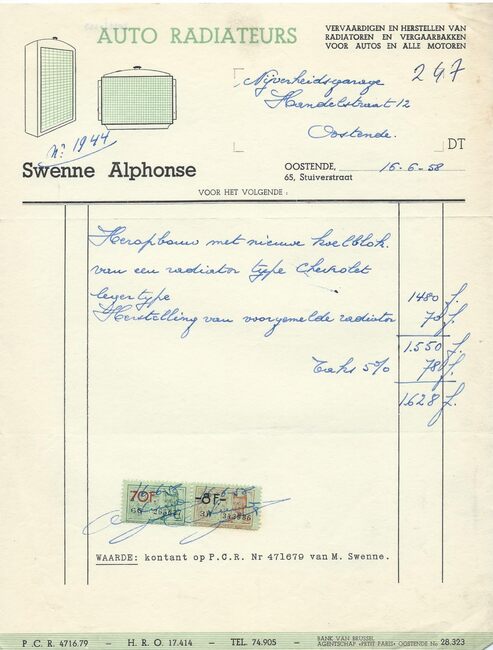 AUTO RADIATEURS
VERVAARDIGEN EN HERSTELLEN VAN
RADIATOREN EN VERGAARBAKKEN
VOOR AUTOS EN ALLE MOTOREN
247
Nijverheidsgarage
Handelstraat 12
Oostende.
DT
Nº 1944
Swenne Alphonse
OOSTENDE, 16-6-58
65, Stuiverstraat
VOOR HET VOLGENDE :
Heropbouw met nieuwe koelblok.
van een radiator type Chevrolet
legertype 1480 f.
Herstelling van voorgemelde radiator 70 f.
1.550 f.
Taks 5% 78 f.
1.628 f.
70F. -8F-
WAARDE: kontant op P.C.R. Nr 471679 van M. Swenne.
P.C.R. 4716.79 - H.R.O. 17.414 - TEL. 74.905 - BANK VAN BRUSSEL
AGENTSCHAP «PETIT PARIS» OOSTENDE No 28.323